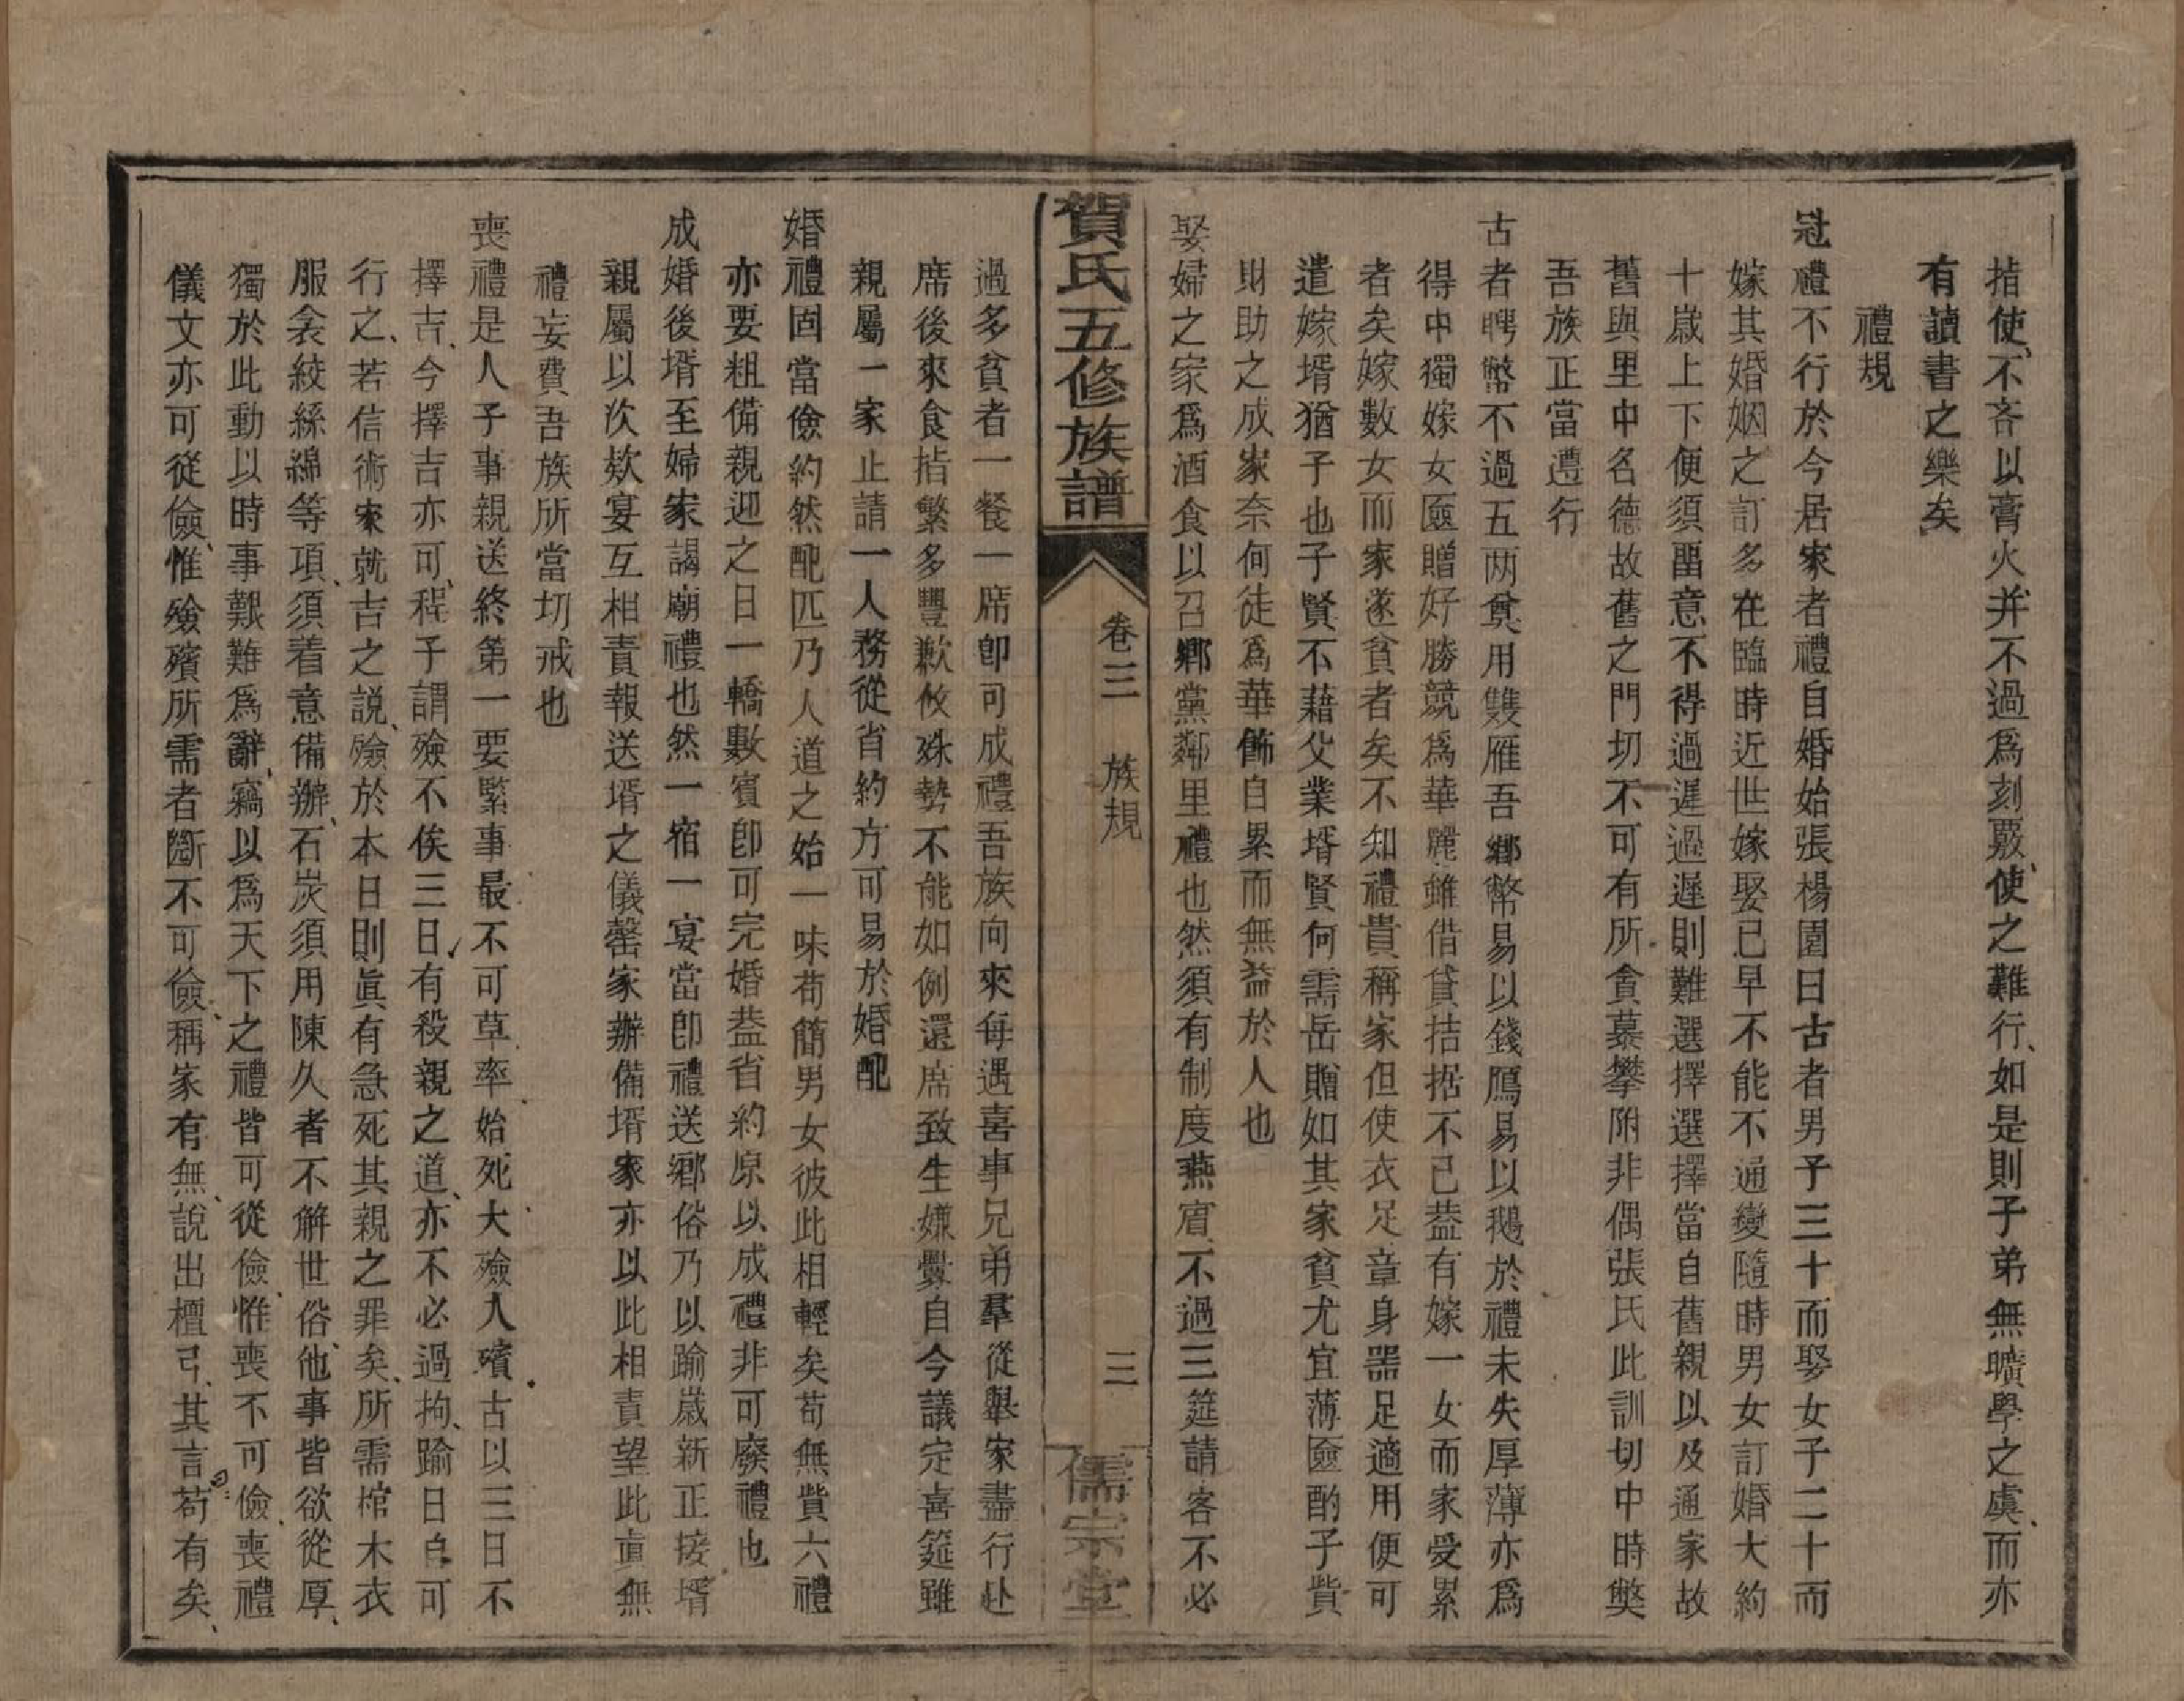 指使、不吝以膏火、并不過爲刻覈、使之難行、如是則子弟無曠學之虞、而亦
有讀書之樂矣、
禮規
冠禮不行於今居家者禮自婚始張楊園曰古者男子三十而娶女子二十而
嫁其婚姻之訂多在臨時近世嫁娶已早不能不通變隨時男女訂婚大約
十歲上下便須畱意不得過遲過遲則難選擇選擇當自舊親以及通家故
舊與里中名德故舊之門切不可有所貪慕攀附非偶張氏此訓切中時獘
吾族正當遵行
古者聘幣不過五两奠用雙雁吾鄉幣易以錢鴈易以鵝於禮未失厚薄亦爲
得中獨嫁女匳贈好勝競爲華麗雖借貸拮据不已葢有嫁一女而家受累
者矣嫁數女而家遂貧者矣不知禮貴稱家但使衣足章身噐足適用便可
遣嫁壻猶子也子賢不藉父業壻賢何需岳贈如其家貧尤宜薄匳酌子貲
財助之成家奈何徒爲華餙自累而無益於人也
娶婦之家爲酒食以召鄉黨鄰里禮也然須有制度燕賔不過三筵請客不必
賀氏五修族譜
卷三 族規
三
儒宗堂
過多貧者一餐一席卽可成禮吾族向來每遇喜事兄弟羣從舉家盡行赴
席後來食指繁多豐歉攸殊勢不能如例還席致生嫌釁自今議定喜筵雖
親屬一家止請一人務從省約方可易於婚配
婚禮固當儉約然配匹乃人道之始一味苟簡男女彼此相輕矣苟無貲六禮
亦要粗備親迎之日一轎數賓卽可完婚葢省約原以成禮非可廢禮也
成婚後壻至婦家謁廟禮也然一宿一宴當卽禮送鄉俗乃以踰歲新正接壻
親屬以次欵宴互相責報送壻之儀罄家辦備壻家亦以此相責望此直無
禮妄費吾族所當切戒也
喪禮是人子事親送終第一要緊事最不可草率、始死、大殮入殯、古以三日不
擇吉、今擇吉亦可、程子謂殮不俟三日、有殺親之道、亦不必過拘、踰日自可
行之、若信術家就吉之説、殮於本日則眞有急死其親之罪矣、所需棺木衣
服衾絞絲綿等項、須着意備辦、石炭須用陳久者不觧世俗、他事皆欲從厚、
獨於此動以時事艱難爲辭、竊以爲天下之禮皆可從儉、惟喪不可儉、喪禮
儀文亦可從儉、惟殮殯所需者斷不可儉、稱家有無、說出檀弓、其言苟有矣、